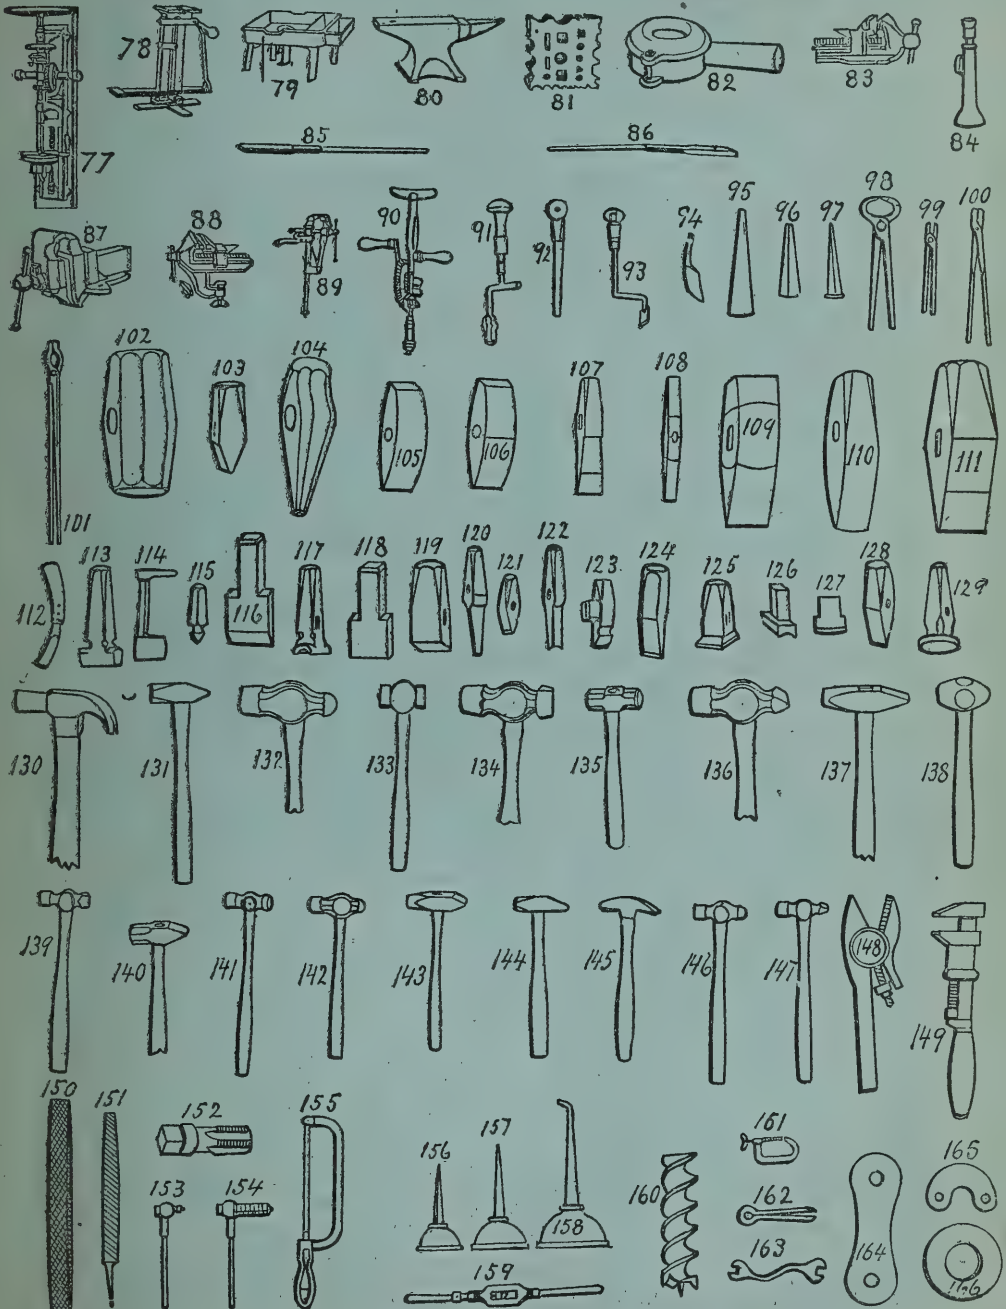 78 79 80 81 82 83 84
77 85 86
87 88 89 90 91 92 93 94 95 96 97 98 99 100
101 102 103 104 105 106 107 108 109 110 111
112 113 114 115 116 117 118 119 120 121 122 123 124 125 126 127 128 129
130 131 132 133 134 135 136 137 138
139 140 141 142 143 144 145 146 147 148 149
150 151 152 155 156 157 158 161 165
153 154 160 162
159 163 164 166